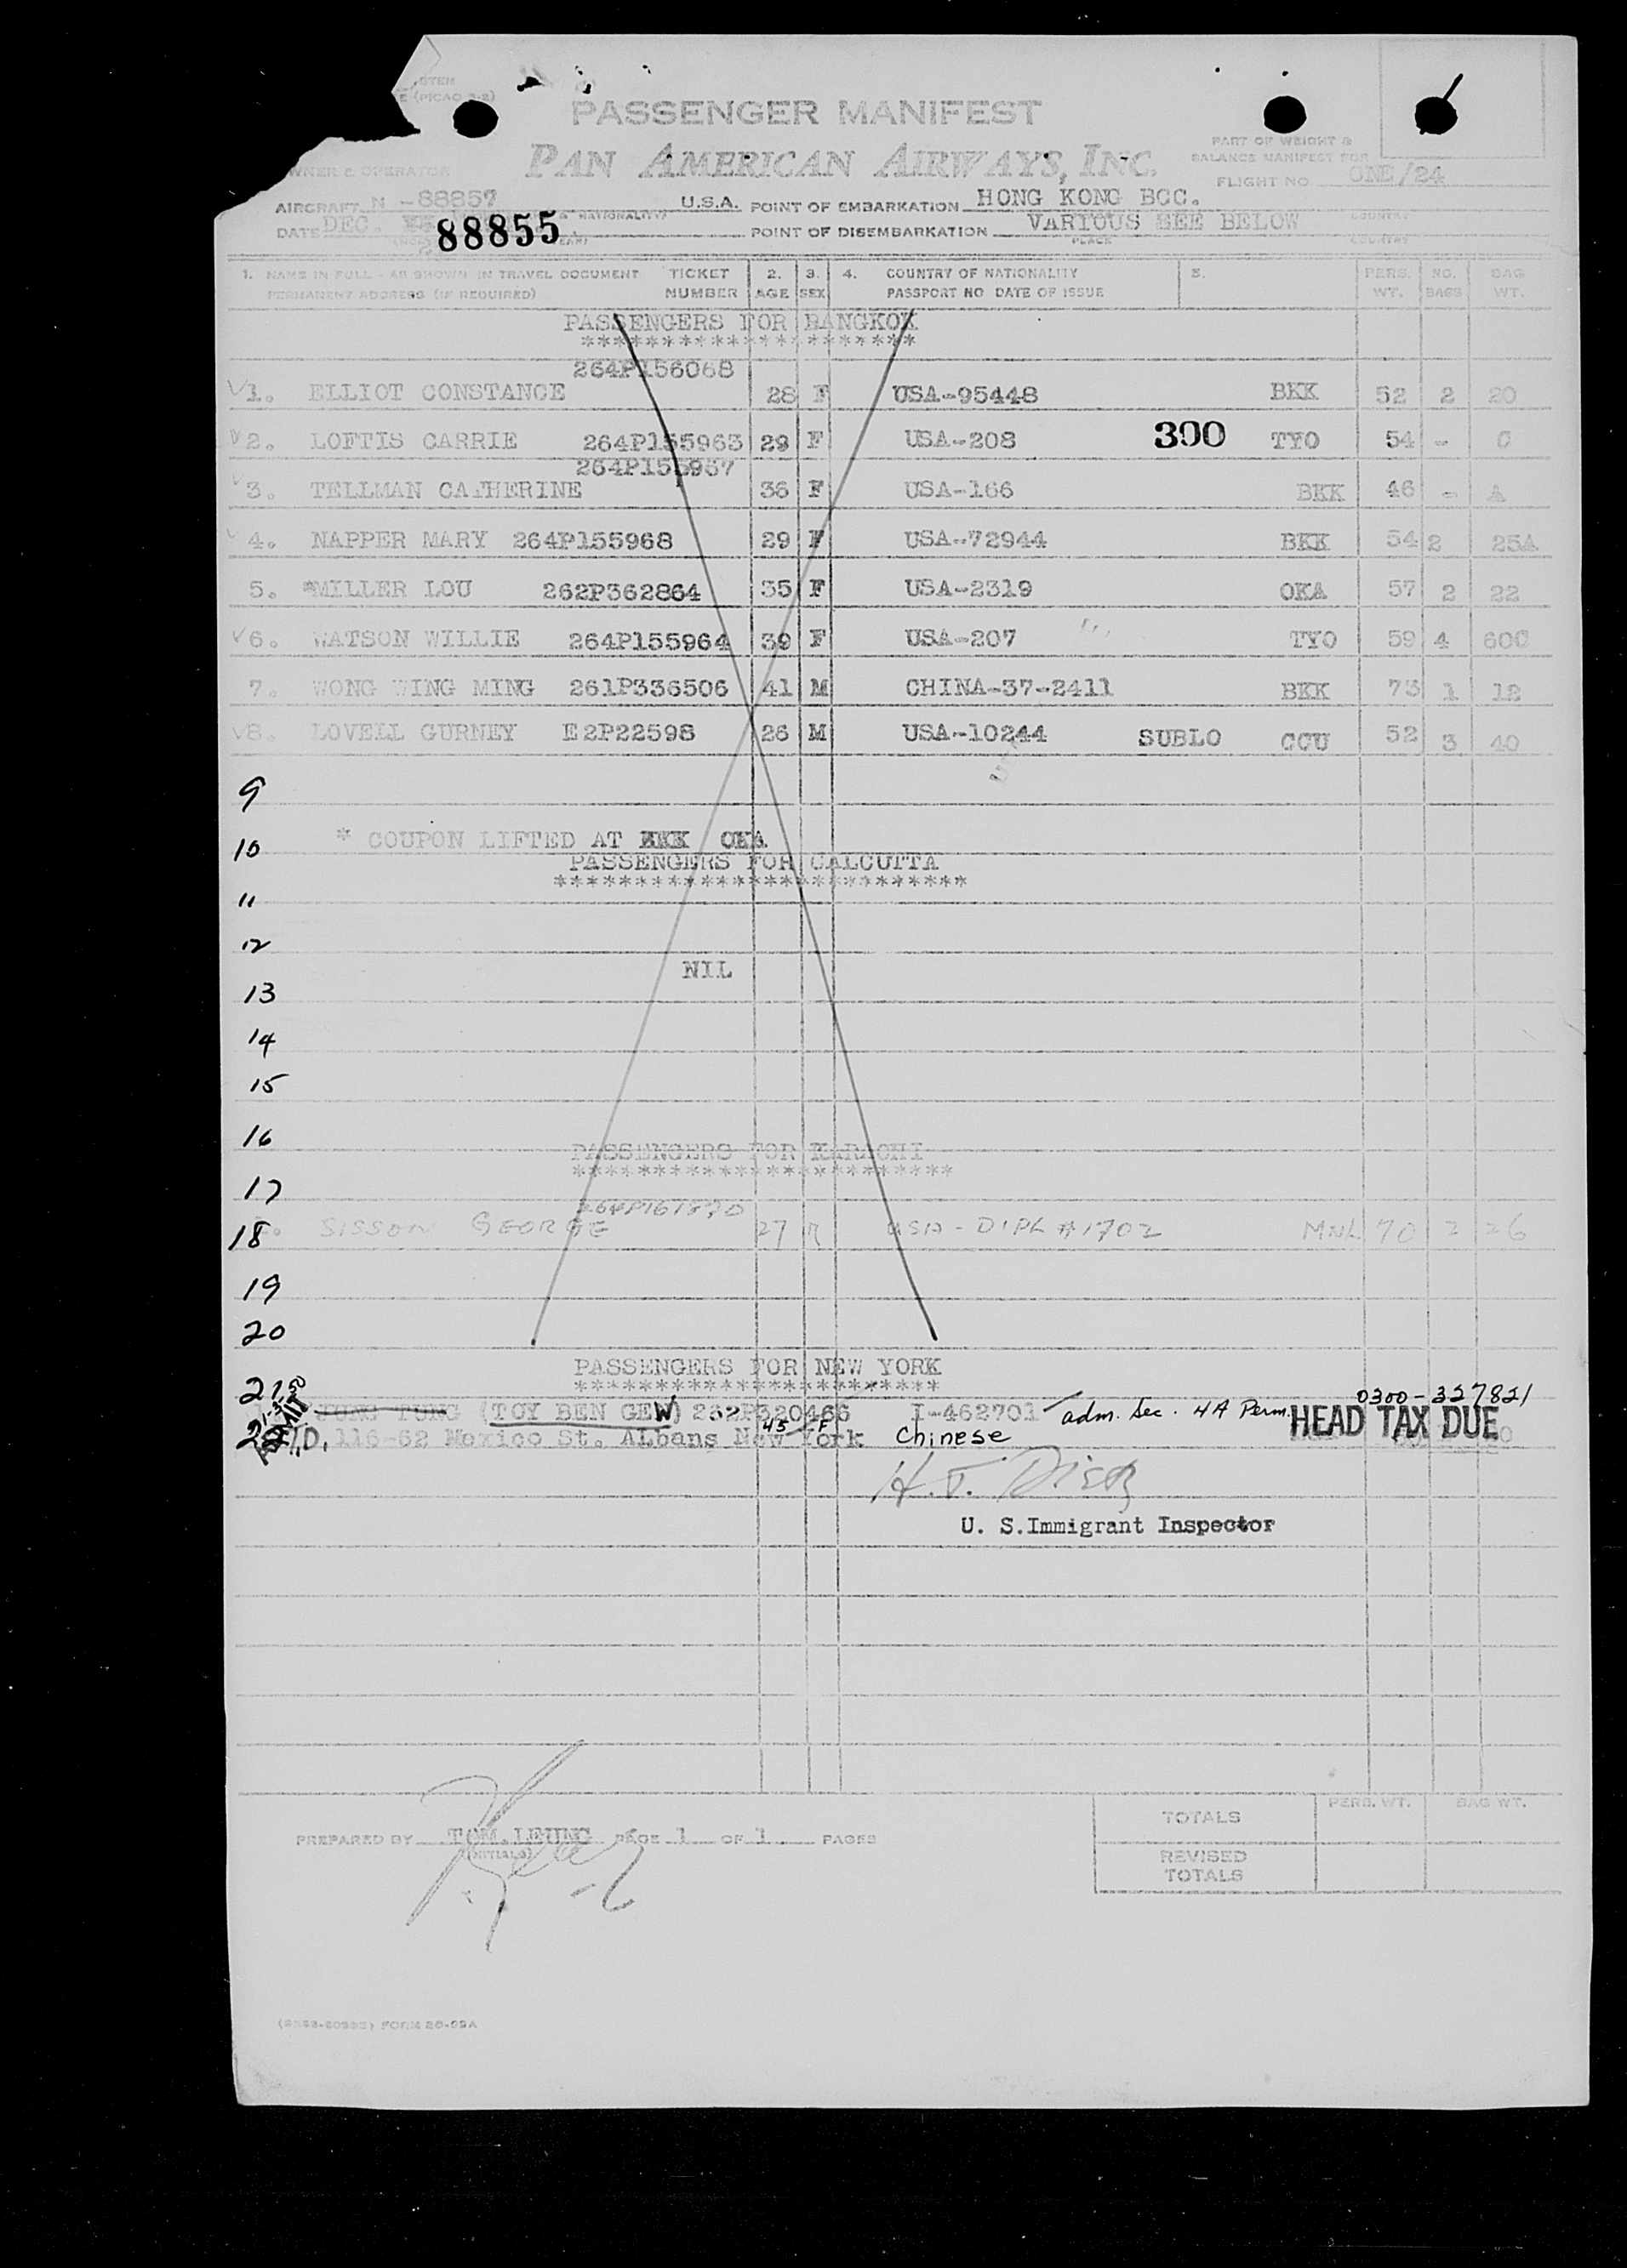 STEM
E (PICAO 2-2)
PASSENGER MANIFEST
PAN AMERICAN AIRWAYS, INC.
PART OF WEIGHT &
BALANCE MANIFEST FOR
FLIGHT NO. ONE/24
WNER & OPERATOR
AIRCRAFT N -88857 U.S.A. POINT OF EMBARKATION HONG KONG BCC.
DATE DEC. 88855 POINT OF DISEMBARKATION VARIOUS SEE BELOW
PLACE COUNTRY
1. NAME IN FULL - AS SHOWN IN TRAVEL DOCUMENT TICKET 2. 3. 4. COUNTRY OF NATIONALITY 5. PERS. NO. BAG
PERMANENT ADDRESS (IF REQUIRED) NUMBER AGE SEX PASSPORT NO DATE OF ISSUE WT. BAGS WT.
PASSENGERS FOR BANGKOK
*********************
264P156068
1. ELLIOT CONSTANCE 28 F USA-95448 BKK 52 2 20
2. LOFTIS CARRIE 264P155963 29 F USA-208 300 TYO 54 - C
264P155957
3. TELLMAN CATHERINE 36 F USA-166 BKK 46 - A
4. NAPPER MARY 264P155968 29 F USA-72944 BKK 54 2 25A
5. *MILLER LOU 262P362864 35 F USA-2319 OKA 57 2 22
6. WATSON WILLIE 264P155964 39 F USA-207 TYO 59 4 60C
7. WONG WING MING 261P336506 41 M CHINA-37-2411 BKK 73 1 12
8. LOVELL GURNEY E2P22598 26 M USA-10244 SUBLO CCU 52 3 40
9
10 * COUPON LIFTED AT OKA
PASSENGERS FOR CALCUTTA
**************************
11
12
NIL
13
14
15
16
PASSENGERS FOR KARACHI
************************
17
18 SISSON GEORGE 27 USA - DIPL #1702 MNL 70 2 26
19
20
PASSENGERS FOR NEW YORK
***********************
21
JUNG TUNG (TOY BEN GEW) 262P320466 I-462701 adm. Sec. 4A Perm. 0300-327821
ADMIT
HEAD TAX DUE
I.D. 116-52 Mexico St. Albans New York 45 F Chinese
U. S. Immigrant Inspector
PREPARED BY TOM. LEUNG PAGE 1 OF 1 PAGES
(INITIALS)
TOTALS PERS. WT. BAG WT.
REVISED
TOTALS
FORM 26-99A